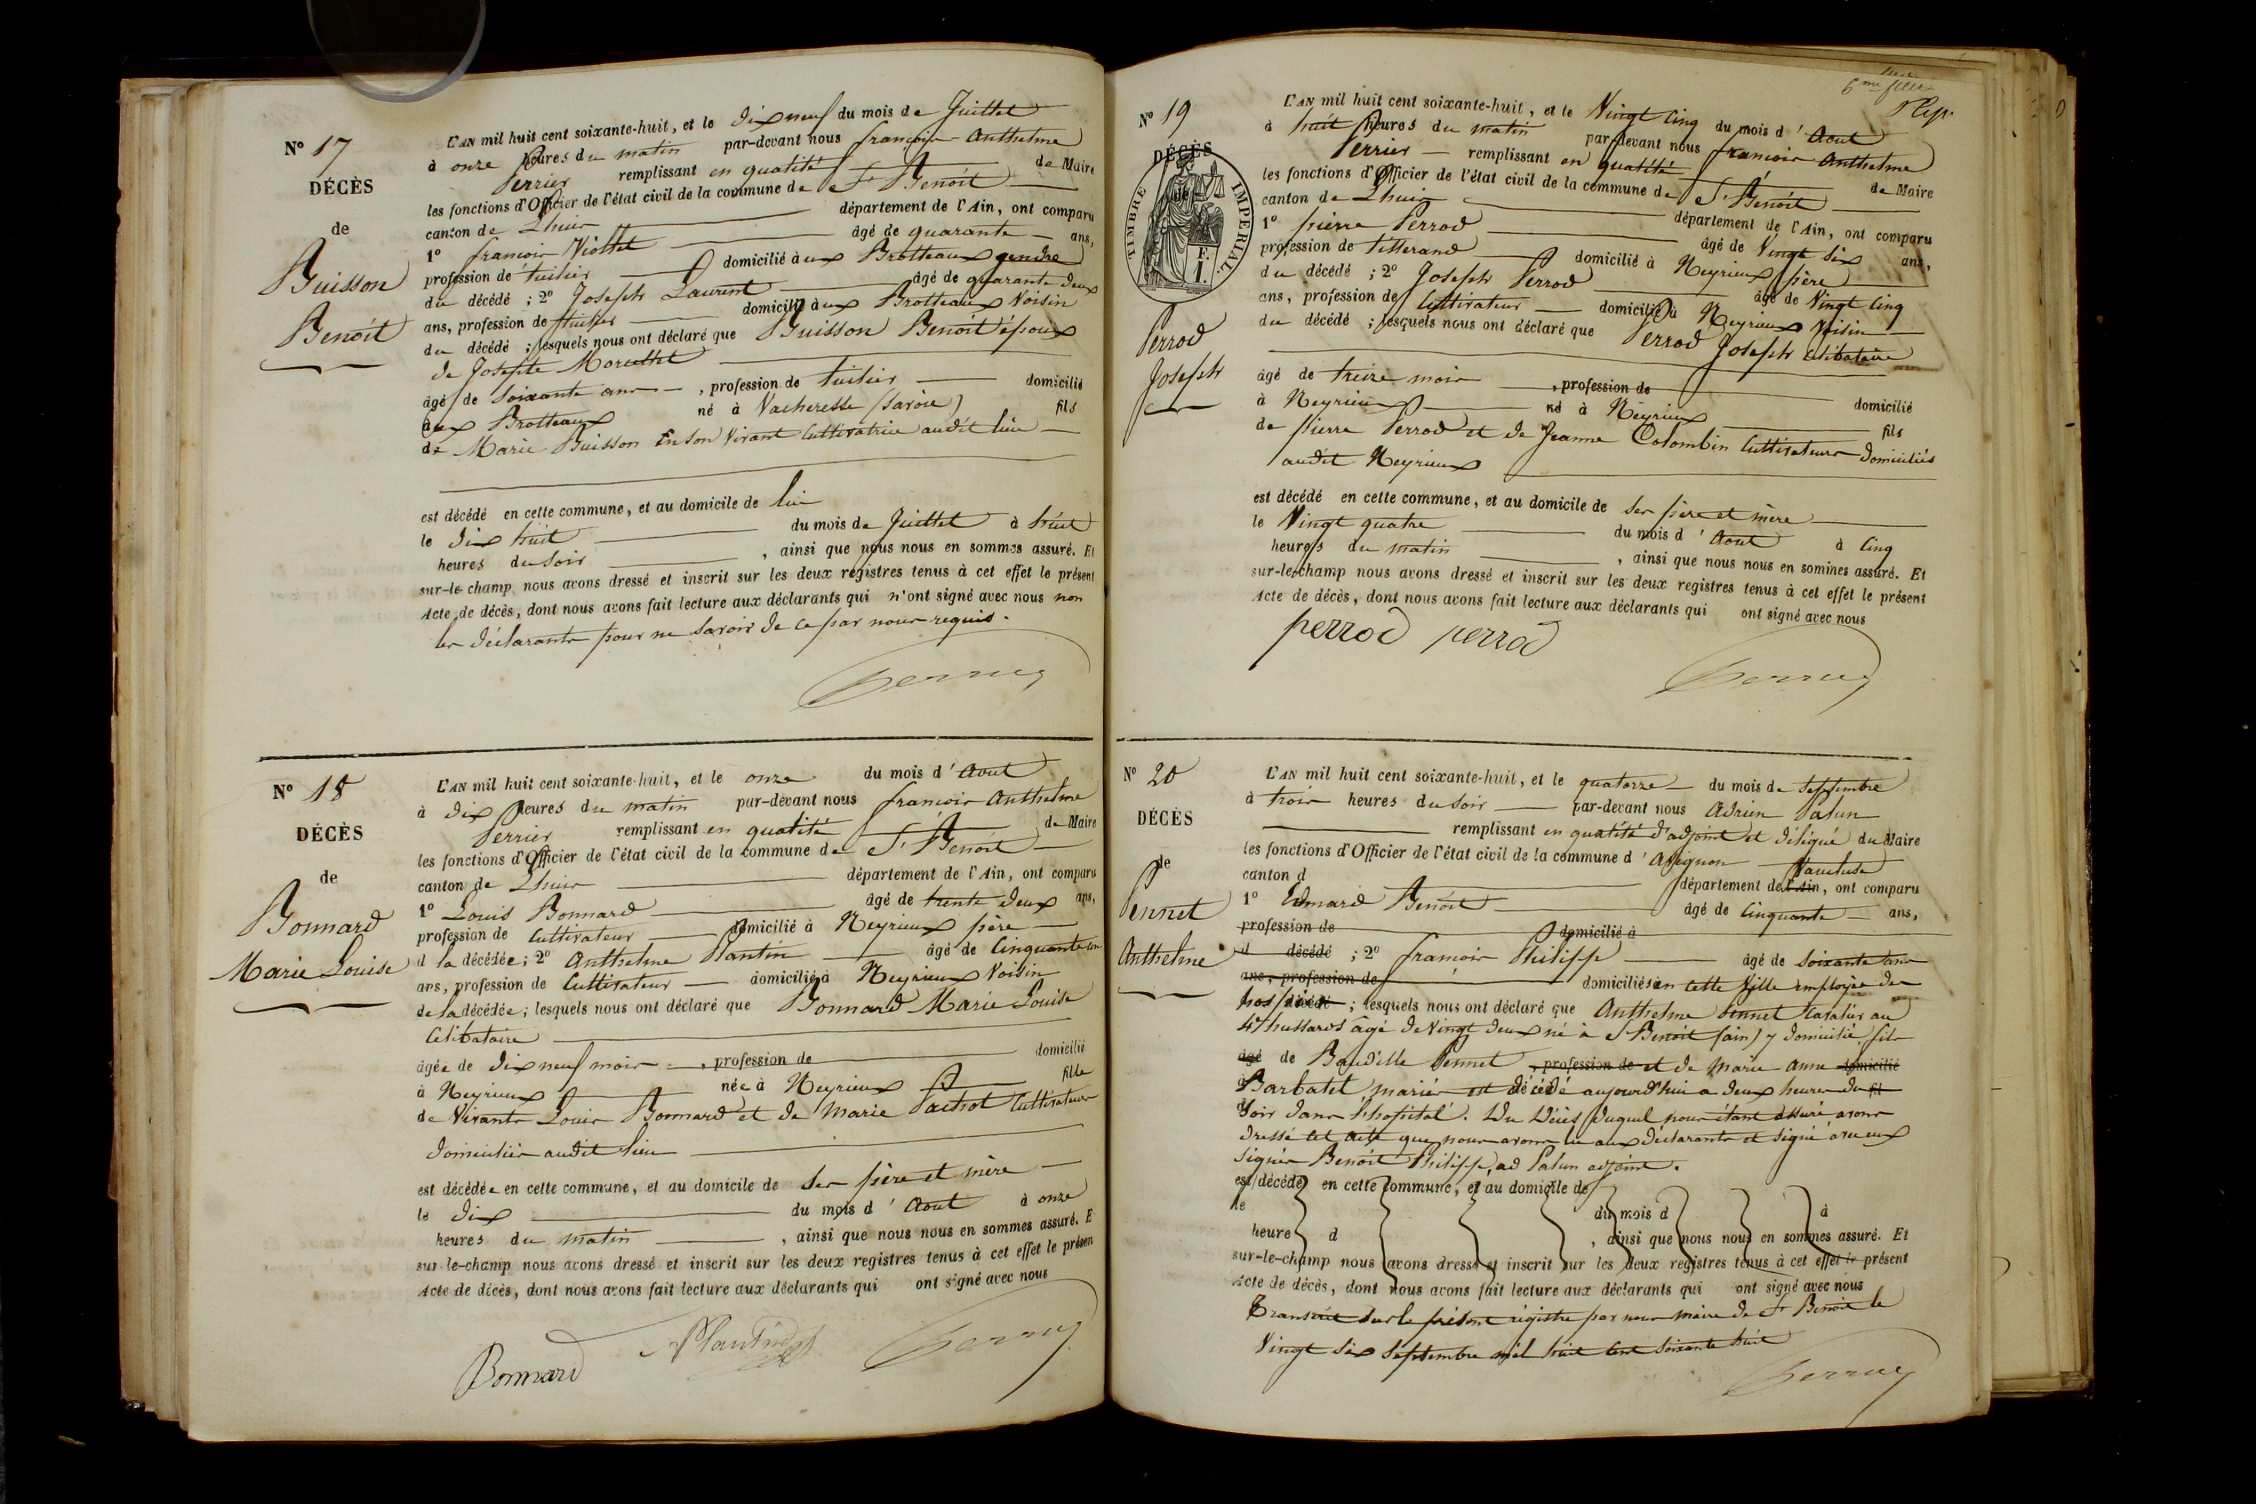 N° 17
DÉCÈS
de
Buisson
Benoît
L'AN mil huit cent soixante-huit, et le dix neuf du mois de Juillet
à onze heures du matin par-devant nous françois Anthelme
Perrier remplissant en qualité de Maire
les fonctions d'Officier de l'état civil de la commune de St Benoît
canton de Lhuis département de l'Ain, ont comparu
1° françois Viollet âgé de quarante ans,
profession de tuilier domicilié aux Brotteaux gendre
du décédé ; 2° Joseph Laurent âgé de quarante deux
ans, profession de tuilier domicilié aux Brotteaux Voisin
du décédé ; lesquels nous ont déclaré que Buisson Benoît époux
de Josephte
âgé de soixante ans , profession de tuilier domicilié
aux Brotteaux né à Vacheresse (Savoie) fils
de Marie Buisson en son vivant Cultivatrice audit lieu
est décédé en cette commune, et au domicile de lui
le dix huit du mois de Juillet à huit
heures du soir , ainsi que nous nous en sommes assuré. Et
sur-le-champ nous avons dressé et inscrit sur les deux registres tenus à cet effet le présent
Acte de décès, dont nous avons fait lecture aux déclarants qui n'ont signé avec nous non
les déclarants pour ne savoir de ce par nous requis.
N° 18
DÉCÈS
de
Bonnard
Marie Louise
L'AN mil huit cent soixante-huit, et le onze du mois d'Aout
à dix heures du matin par-devant nous françois Anthelme
Perrier remplissant en qualité de Maire
les fonctions d'Officier de l'état civil de la commune de St Benoît
canton de Lhuis département de l'Ain, ont comparu
1° Louis Bonnard âgé de trente deux ans,
profession de Cultivateur domicilié à Neyrieux père
d la décédée ; 2° Anthelme Plantin âgé de Cinquante un
ans, profession de Cultivateur domicilié à Neyrieux Voisin
de la décédée ; lesquels nous ont déclaré que Bonnard Marie Louise
Célibataire
âgée de dix neuf mois , profession de domicilié
à Neyrieux née à Neyrieux fille
de Vivants Louis Bonnard et de Marie Pachot Cultivateurs
domiciliés audit lieu
est décédée en cette commune, et au domicile de ses père et mère
le dix du mois d'Aout à onze
heures du matin , ainsi que nous nous en sommes assuré. E
sur-le-champ nous avons dressé et inscrit sur les deux registres tenus à cet effet le présen
Acte de décès, dont nous avons fait lecture aux déclarants qui ont signé avec nous
Bonnard Plantin
N° 19
DÉCÈS
de
TIMBRE IMPERIAL.
Perrod
Joseph
L'AN mil huit cent soixante-huit, et le Vingt Cinq du mois d'Aout
à huit heures du matin par devant nous françois Anthelme
Perrier remplissant en qualité de Maire
les fonctions d'Officier de l'état civil de la commune de St Benoît
canton de Lhuis département de l'Ain, ont comparu
1° pierre Perrod âgé de Vingt Six ans,
profession de tisserand domicilié à Neyrieux père
du décédé ; 2° Joseph Perrod âgé de Vingt Cinq
ans, profession de Cultivateur domicilié à Neyrieux Voisin
du décédé ; lesquels nous ont déclaré que Perrod Joseph Célibataire
âgé de treize mois , profession de domicilié
à Neyrieux né à Neyrieux fils
de pierre Perrod et de Jeanne Colombin Cultivateurs domiciliés
audit Neyrieux
est décédé en cette commune, et au domicile de ses père et mère
le Vingt quatre du mois d'Aout à Cinq
heures du matin , ainsi que nous nous en sommes assuré. Et
sur-le-champ nous avons dressé et inscrit sur les deux registres tenus à cet effet le présent
Acte de décès, dont nous avons fait lecture aux déclarants qui ont signé avec nous
perrod perrod
N° 20
DÉCÈS
de
Pennet
Anthelme
L'AN mil huit cent soixante-huit, et le quatorze du mois de Septembre
à trois heures du soir par-devant nous Adrien Palun
remplissant en qualité d'adjoint et délégué du Maire
les fonctions d'Officier de l'état civil de la commune d'Avignon
canton d département de l'Ain Vaucluse, ont comparu
1° Edmard Benoît âgé de Cinquante ans,
profession de domicilié à
d décédé ; 2° françois Philipp âgé de Soixante ans
ans, profession de domiciliés en cette Ville employés des
hospices ; lesquels nous ont déclaré que Anthelme Pennet Cavalier au
4e hussards âgé de Vingt deux né à St Benoît (ain) y domicilié, fils
âgé de Baudille Pennet , profession de et de Marie Anne domicilié
Barbatet mariés est décédé aujourd'hui a deux heures du fil
Soir dans l'hopital. Du Décès duquel nous étant assuré avons
dressé cet acte que nous avons lu aux déclarants et signé avec eux
Signés Benoît Philipp, ad Palun adjoint.
est décédé en cette commune, et au domicile de
le du mois d à
heure d , ainsi que nous nous en sommes assuré. Et
sur-le-champ nous avons dressé et inscrit sur les deux registres tenus à cet effet le présent
Acte de décès, dont nous avons fait lecture aux déclarants qui ont signé avec nous
Transcrit sur le présent régistre par nous maire de St Benoît le
Vingt Six Septembre mil huit cent soixante huit